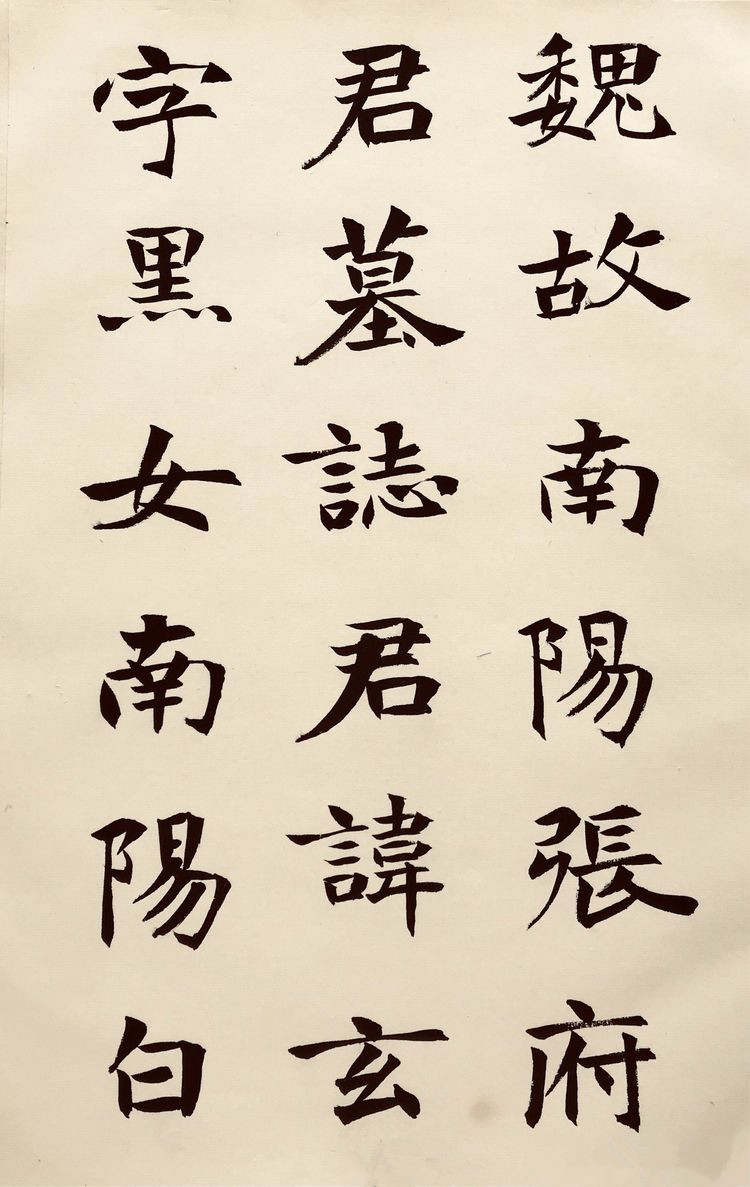 魏故南陽張府
君墓誌君諱玄
字黑女南陽白